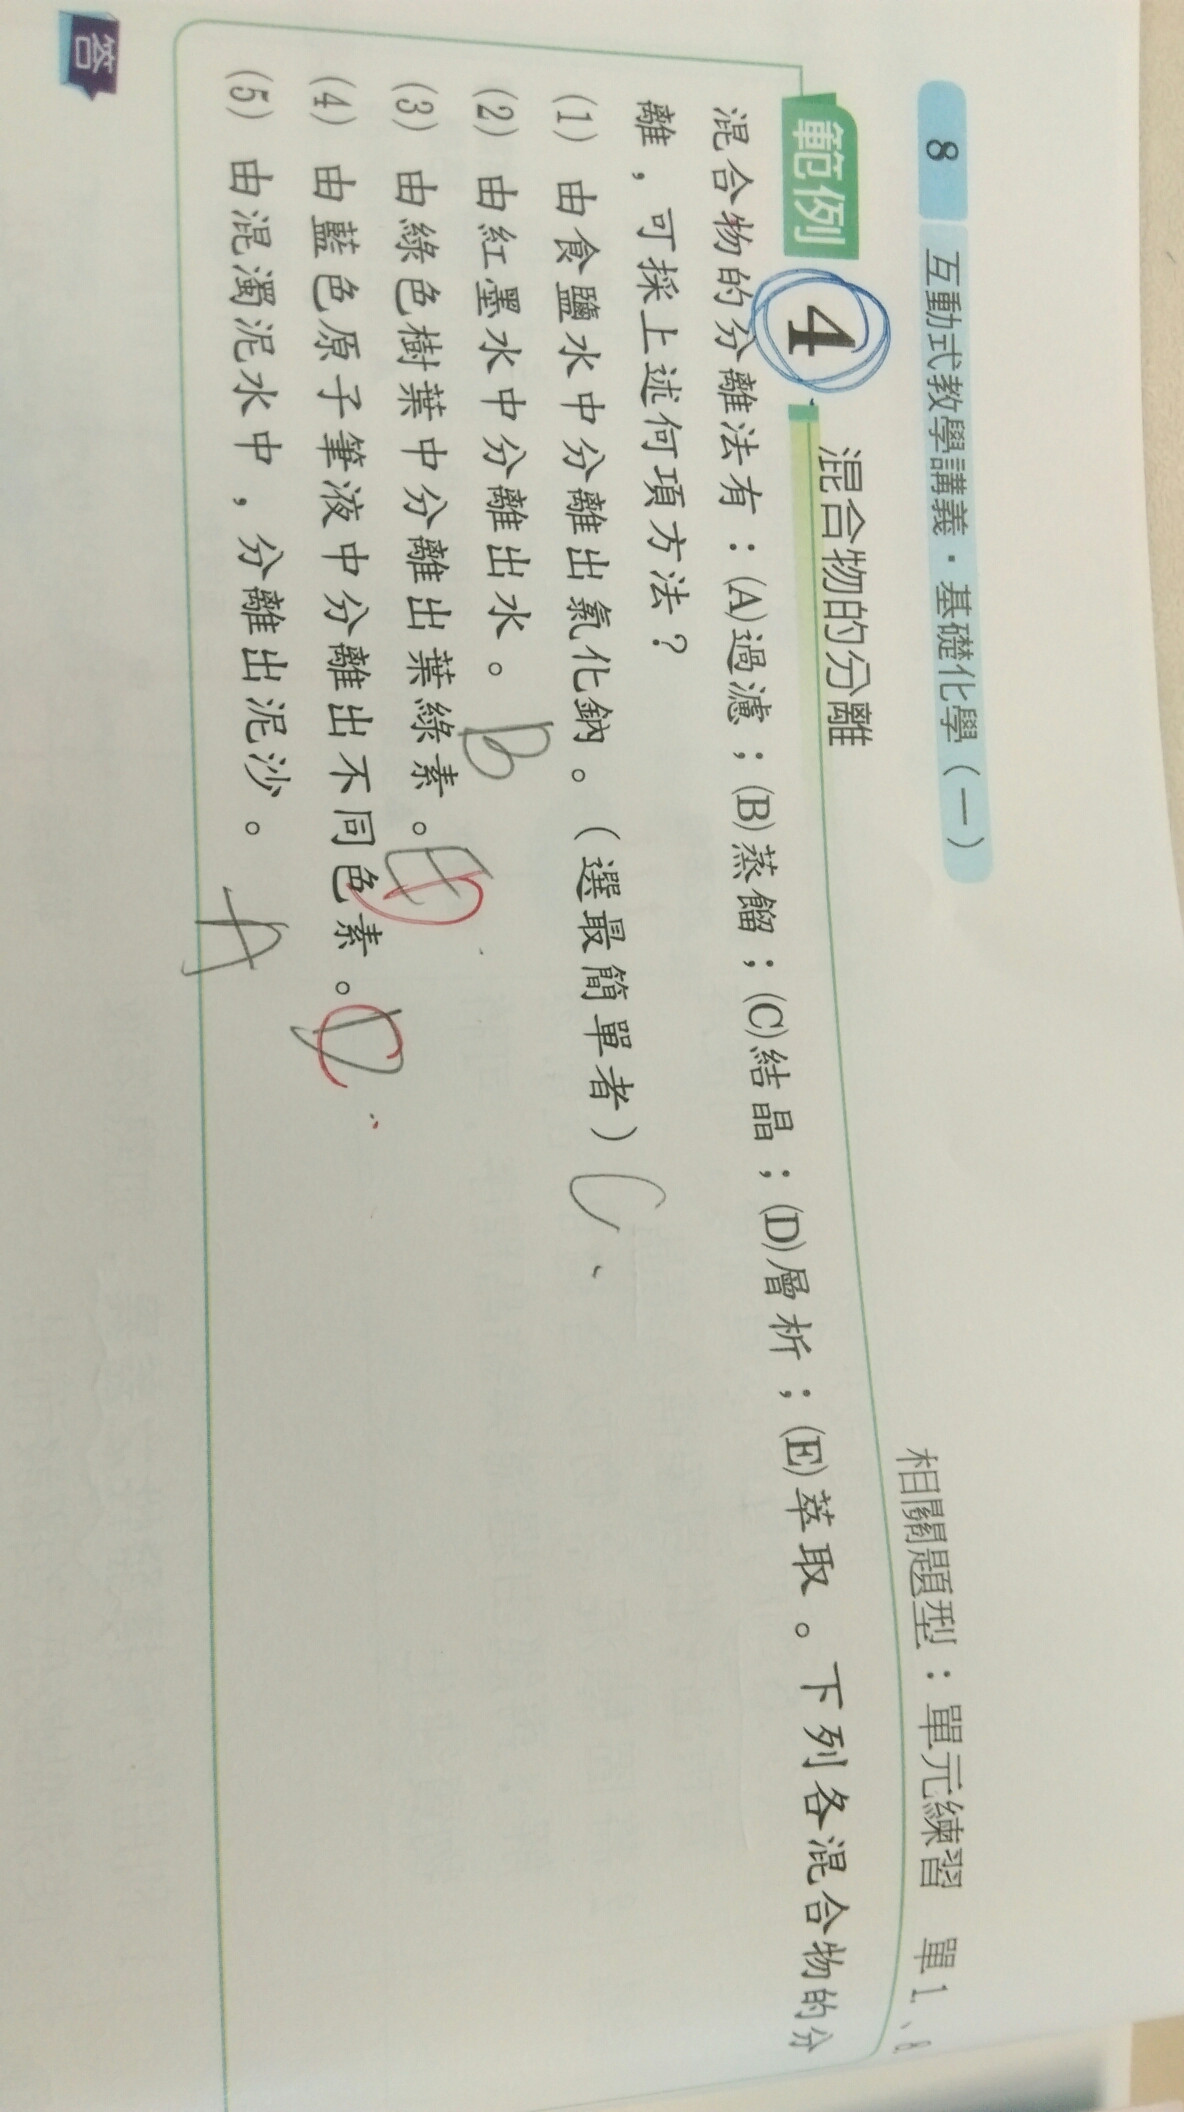 8 互動式教學講義・基礎化學（一）
相關題型：單元練習 單1、8
範例 4 混合物的分離
混合物的分離法有：(A)過濾；(B)蒸餾；(C)結晶；(D)層析；(E)萃取。下列各混合物的分
離，可採上述何項方法？
(1) 由食鹽水中分離出氯化鈉。（選最簡單者） C、
(2) 由紅墨水中分離出水。 B
(3) 由綠色樹葉中分離出葉綠素。 E D
(4) 由藍色原子筆液中分離出不同色素。 D C
(5) 由混濁泥水中，分離出泥沙。 A
答